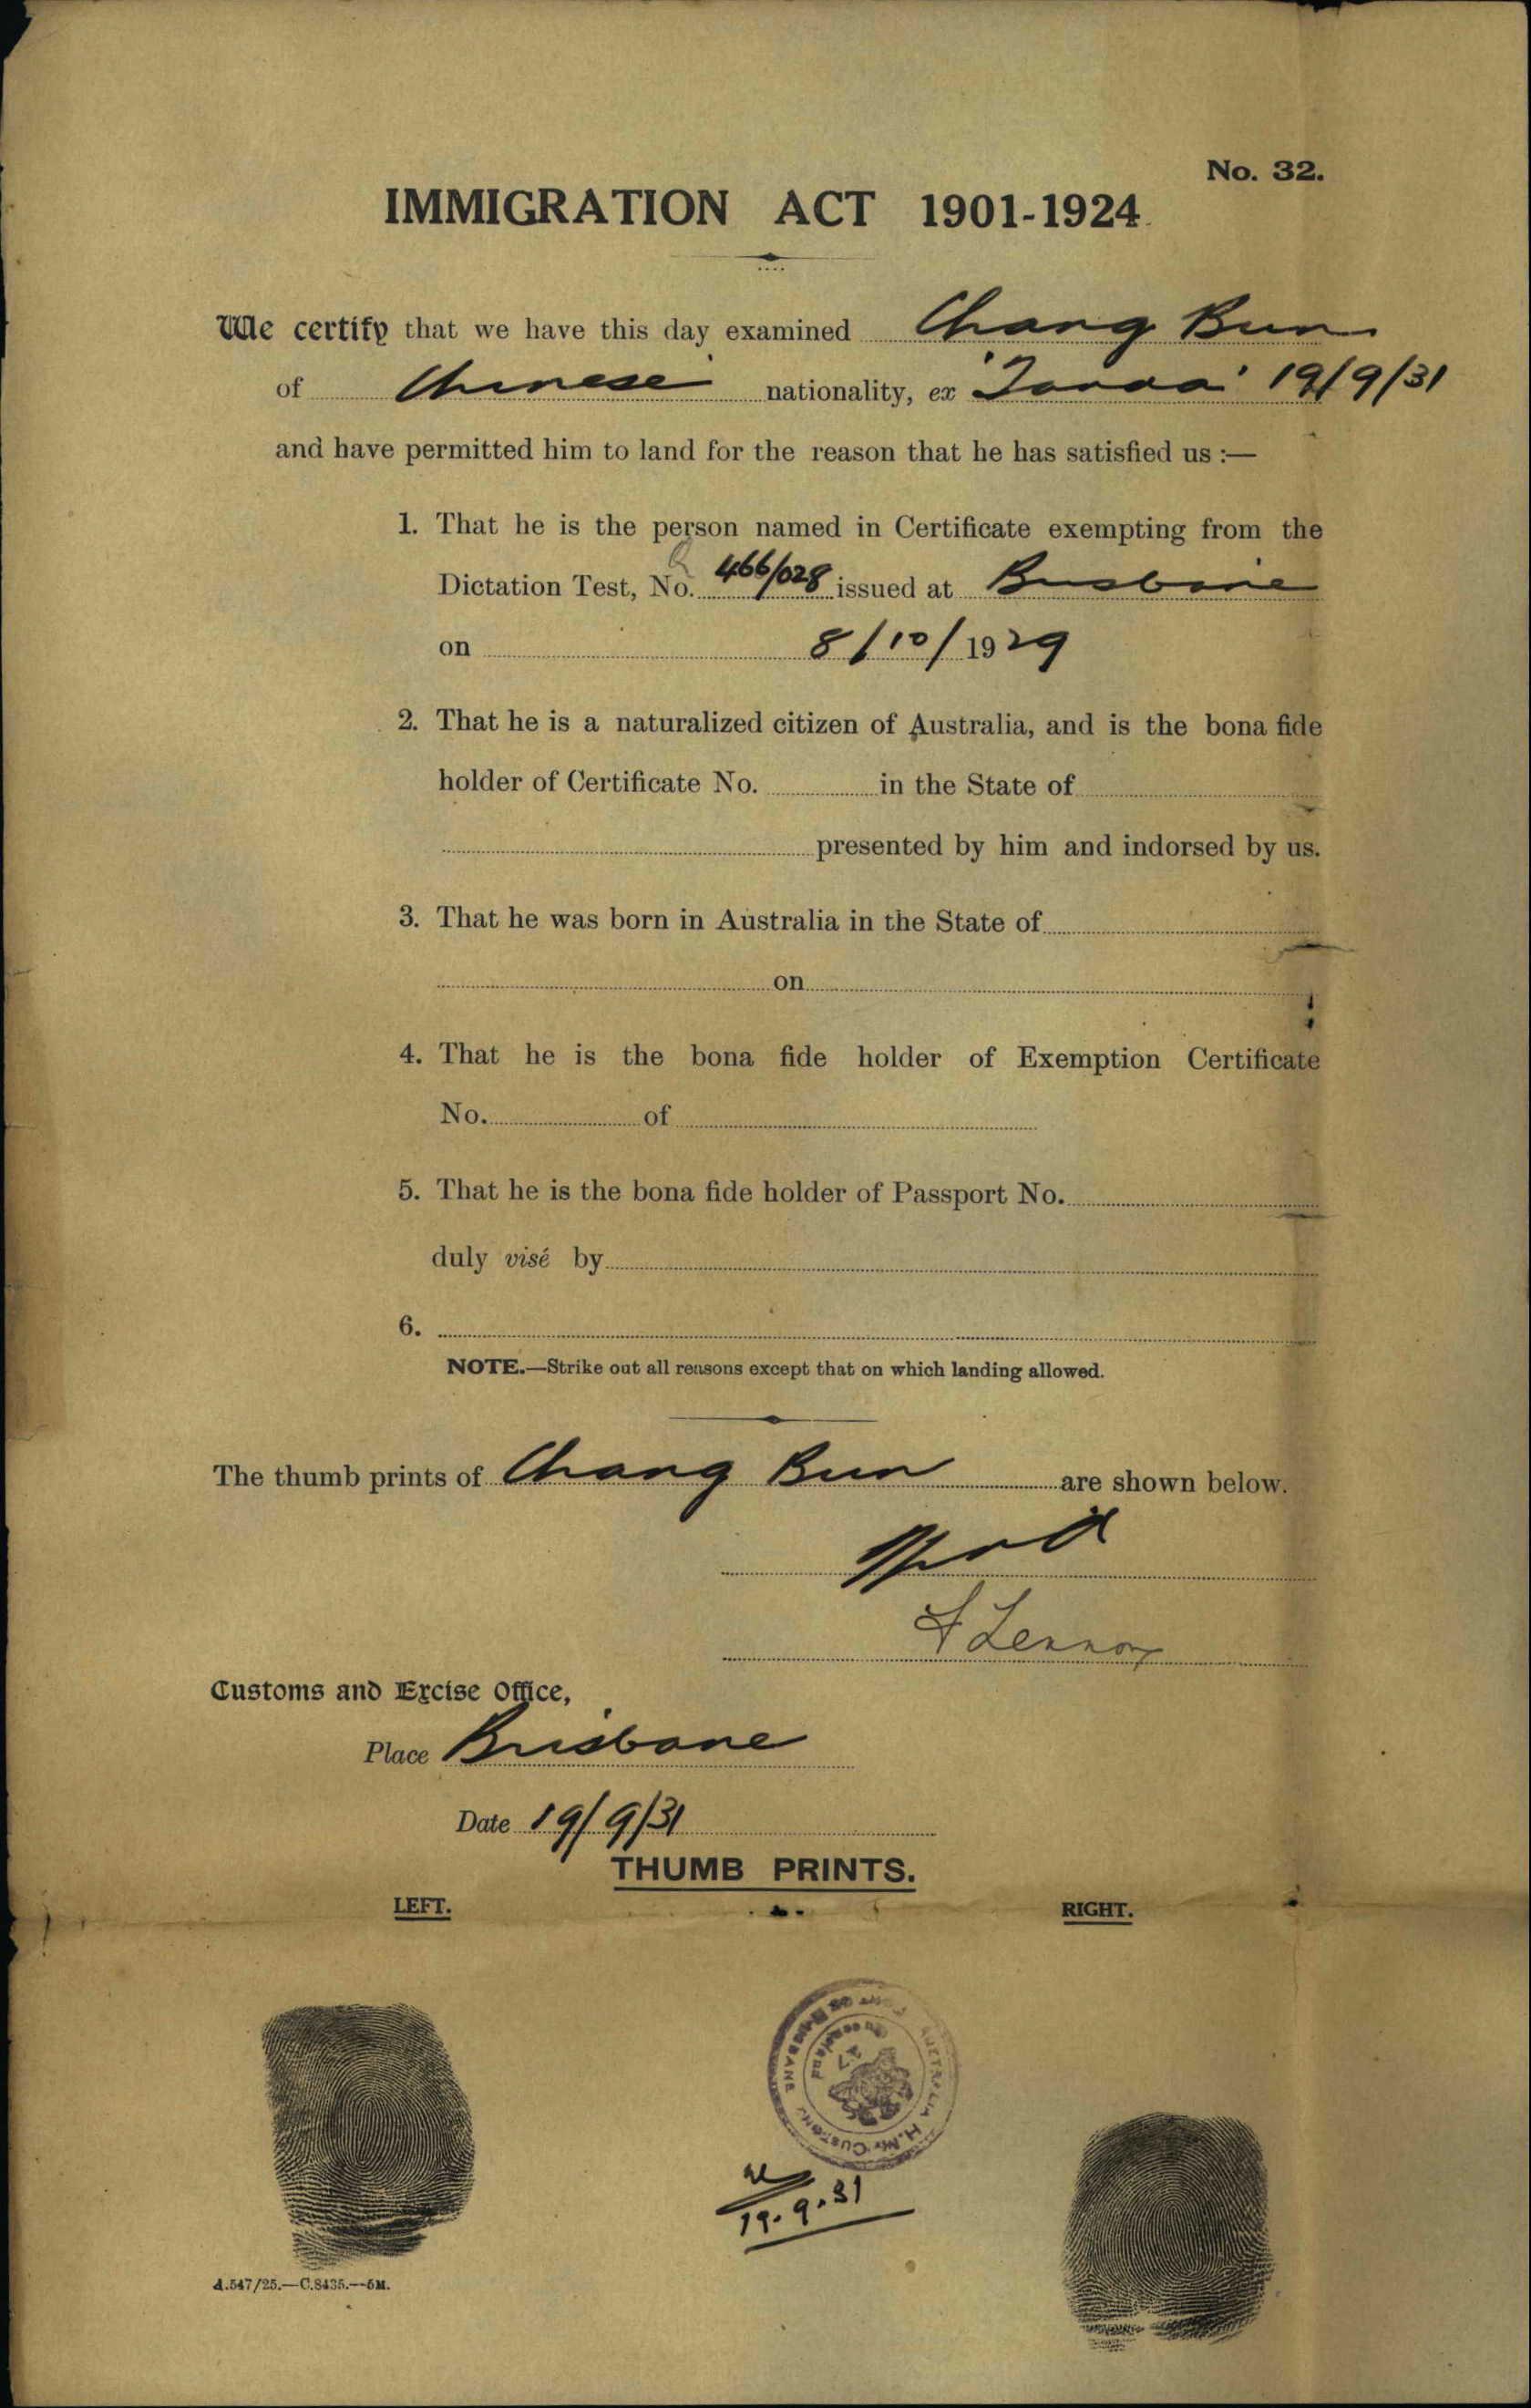 No. 32.
IMMIGRATION ACT 1901-1924.
We certify that we have this day examined Chang Bun
of Chinese nationality, ex "Tanda" 19/9/31
and have permitted him to land for the reason that he has satisfied us :—
1. That he is the person named in Certificate exempting from the
Dictation Test, No. 466/028 issued at Brisbane
on 8/10/1929
2. That he is a naturalized citizen of Australia, and is the bona fide
holder of Certificate No. in the State of
presented by him and indorsed by us.
3. That he was born in Australia in the State of
on
4. That he is the bona fide holder of Exemption Certificate
No. of
5. That he is the bona fide holder of Passport No.
duly visé by
6.
NOTE.—Strike out all reasons except that on which landing allowed.
The thumb prints of Chang Bun are shown below.
F Lennox
Customs and Excise Office,
Place Brisbane
Date 19/9/31
THUMB PRINTS.
LEFT. RIGHT.
AUSTRALIA H.M. CUSTOMS BRISBANE
19.9.31
A.547/25.—C.8435.—5M.